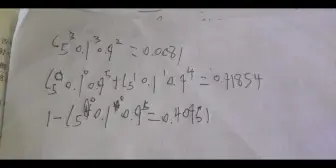 C5^3 0.1^3 0.9^2 = 0.0081
C5^0 0.1^0 0.9^5 + C5^1 0.1^1 0.9^4 = 0.91854
1 - C5^0 0.1^0 0.9^5 = 0.40951